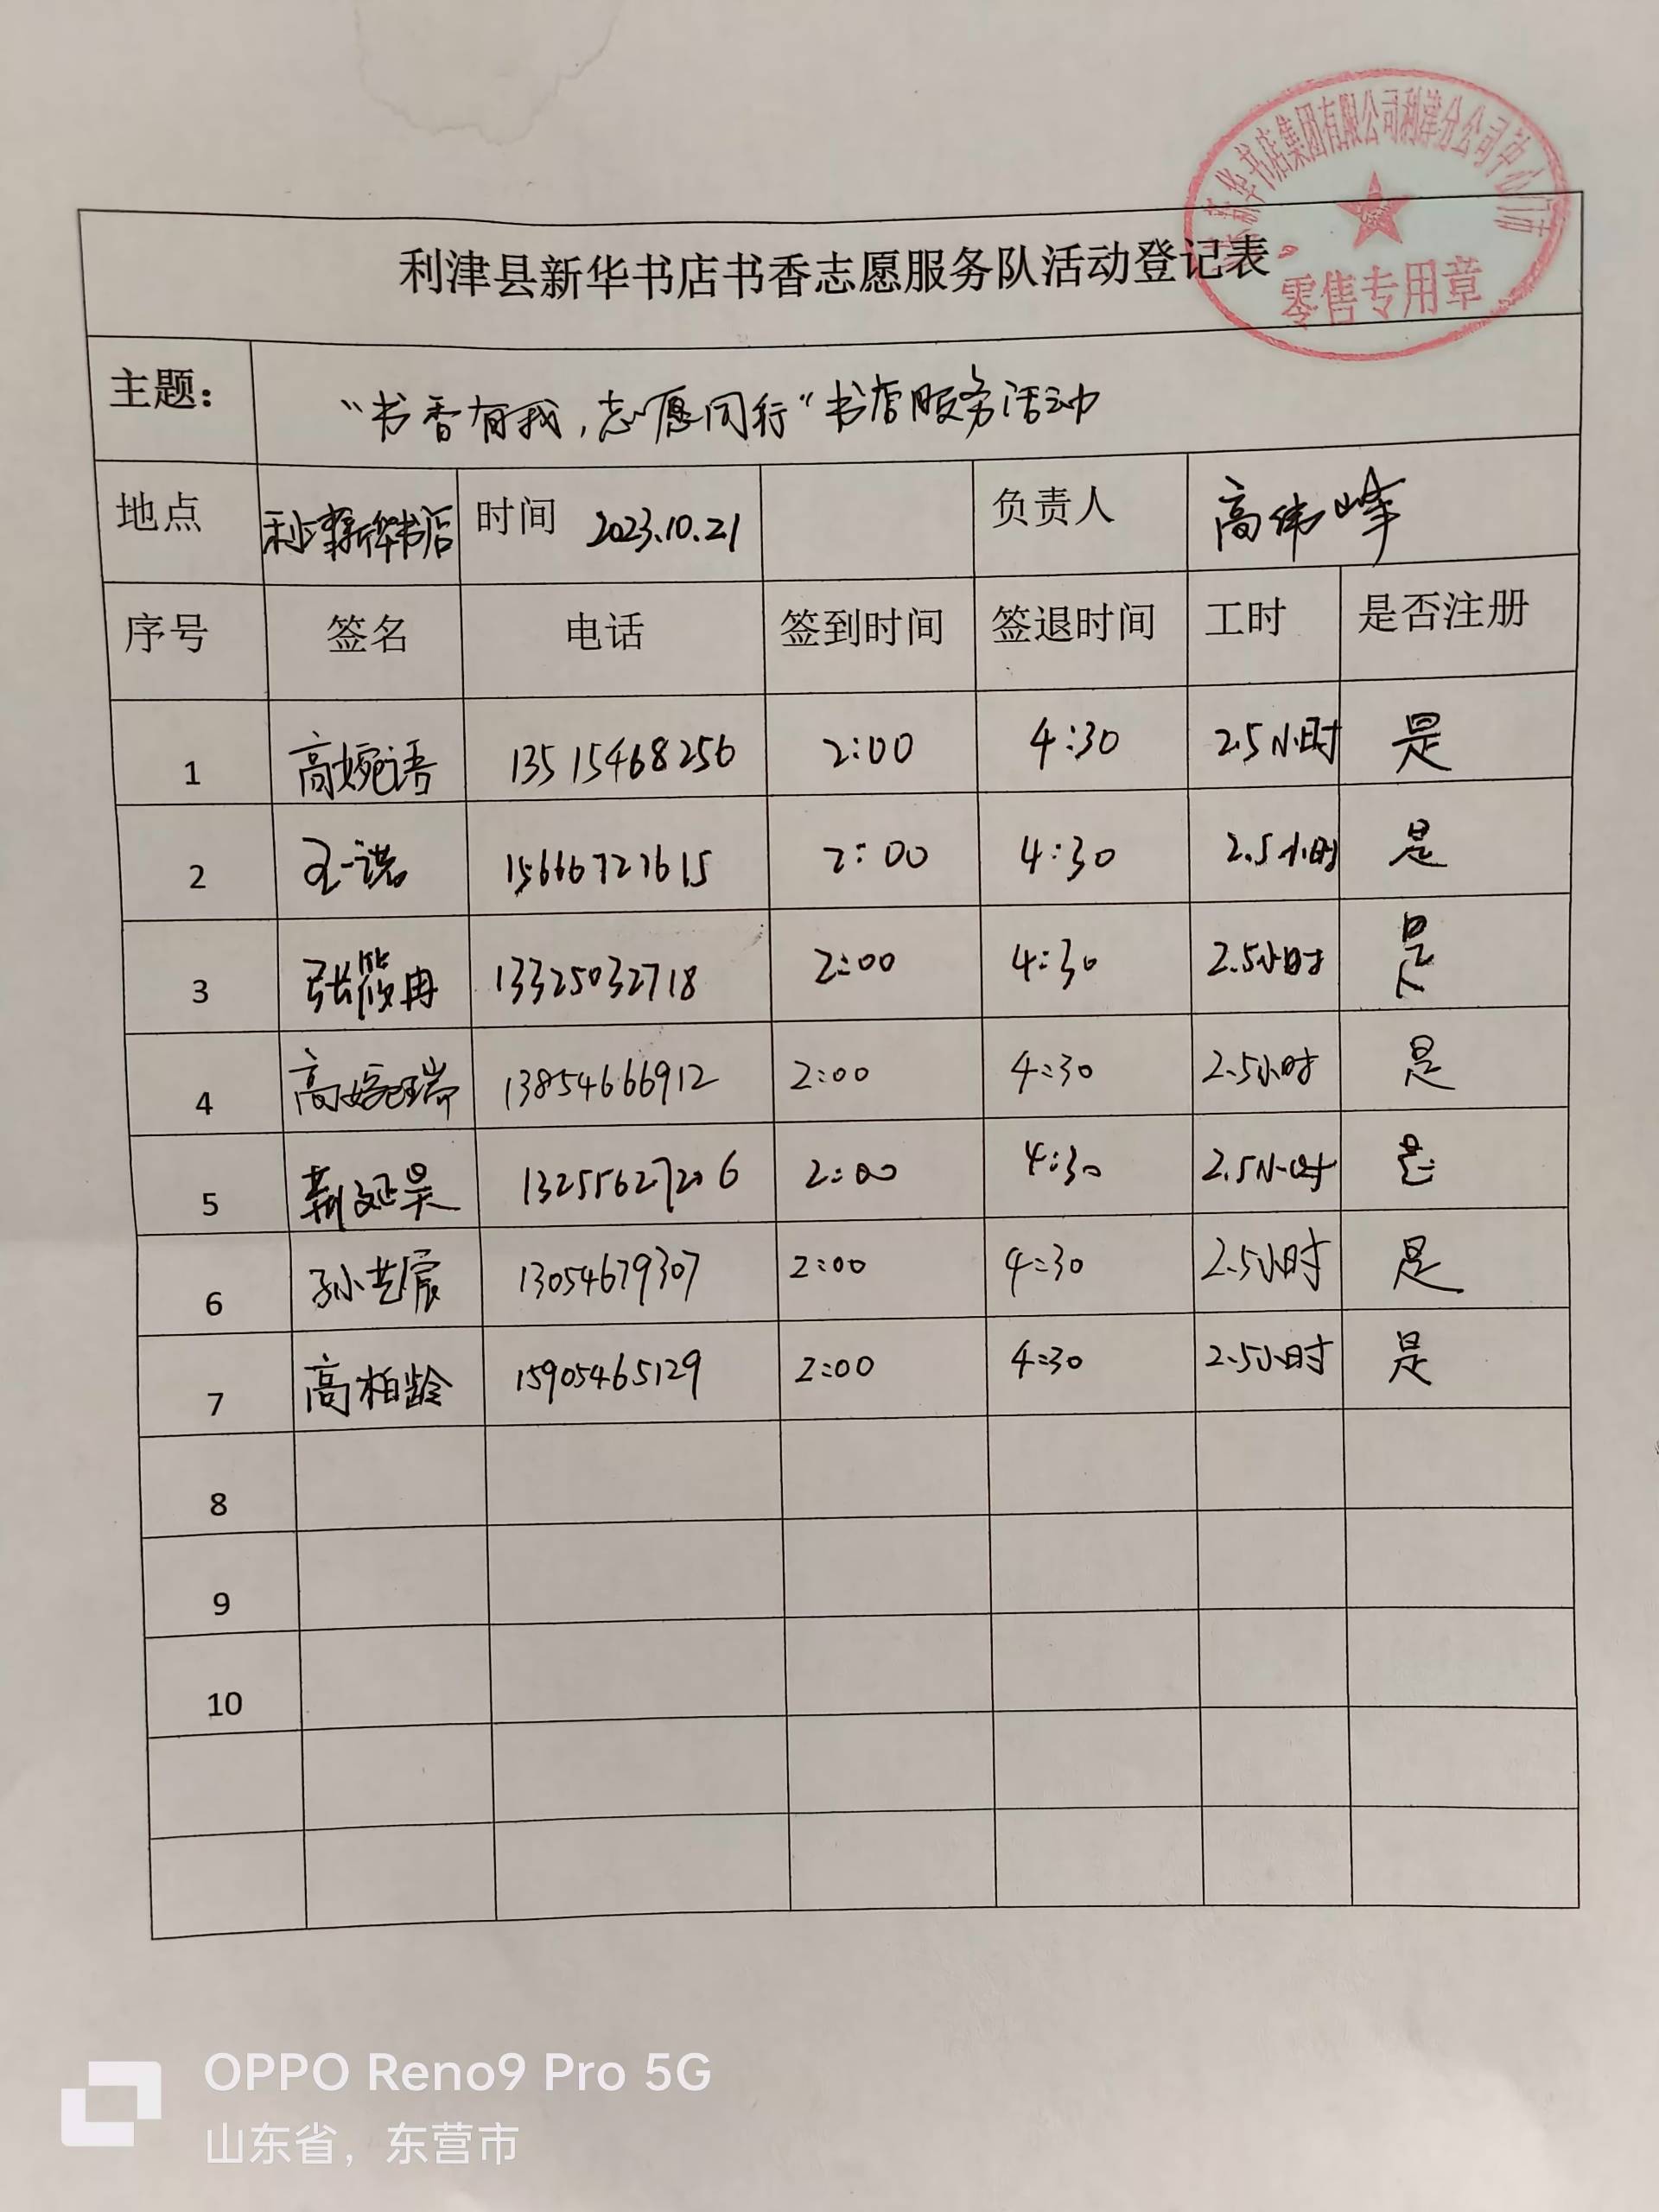 山东新华书店集团有限公司利津分公司中心门市
零售专用章
利津县新华书店书香志愿服务队活动登记表
主题： “书香有我，志愿同行”书店服务活动
地点 利津新华书店 时间 2023.10.21 负责人 高伟峰
序号 签名 电话 签到时间 签退时间 工时 是否注册
1 高婉语 13515468256 2:00 4:30 2.5小时 是
2 王一诺 15666727615 2:00 4:30 2.5小时 是
3 张筱冉 13325032718 2:00 4:30 2.5小时 是
4 高婉瑞 13854666912 2:00 4:30 2.5小时 是
5 靳延昊 13255627206 2:00 4:30 2.5小时 是
6 孙艺宸 13054679307 2:00 4:30 2.5小时 是
7 高柏龄 15905465129 2:00 4:30 2.5小时 是
8
9
10
OPPO Reno9 Pro 5G
山东省，东营市